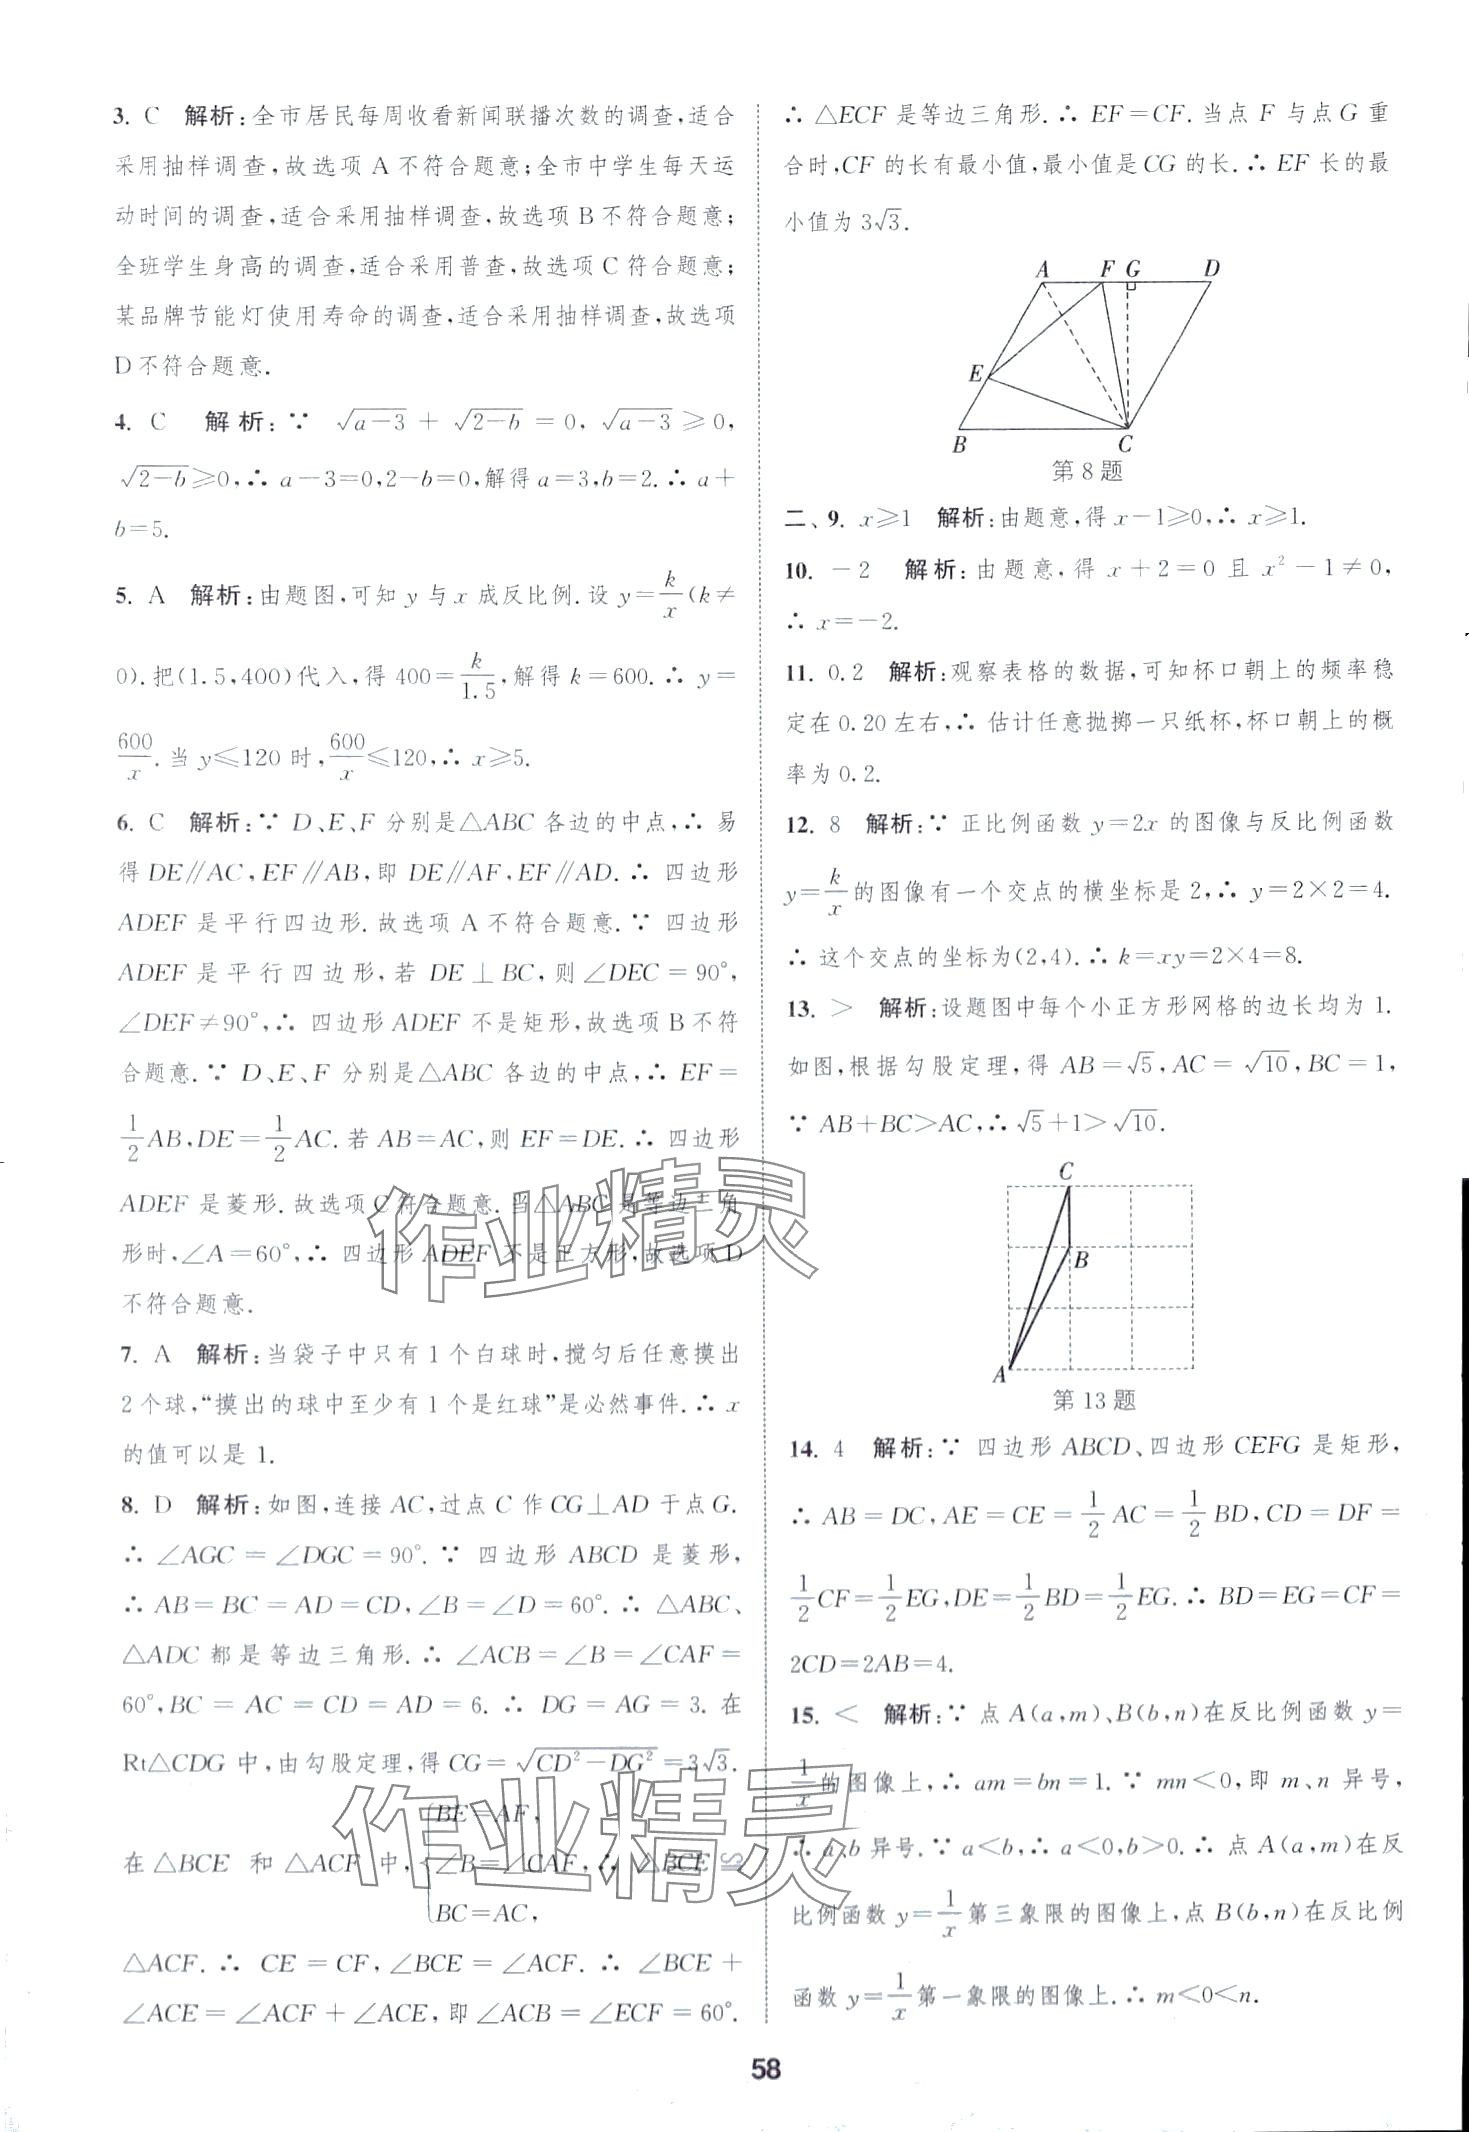 3. C 解析:全市居民每周收看新闻联播次数的调查,适合
采用抽样调查,故选项 A 不符合题意;全市中学生每天运
动时间的调查,适合采用抽样调查,故选项 B 不符合题意;
全班学生身高的调查,适合采用普查,故选项 C 符合题意;
某品牌节能灯使用寿命的调查,适合采用抽样调查,故选项
D 不符合题意.
4. C 解析:∵ √(a-3) + √(2-b) = 0, √(a-3) ≥ 0,
√(2-b) ≥ 0, ∴ a-3=0, 2-b=0, 解得 a=3, b=2. ∴ a+
b=5.
5. A 解析:由题图,可知 y 与 x 成反比例. 设 y=k/x (k≠
0). 把(1.5,400)代入,得 400=k/1.5, 解得 k=600. ∴ y=
600/x. 当 y≤120 时, 600/x≤120, ∴ x≥5.
6. C 解析:∵ D、E、F 分别是△ABC 各边的中点, ∴ 易
得 DE∥AC, EF∥AB, 即 DE∥AF, EF∥AD. ∴ 四边形
ADEF 是平行四边形. 故选项 A 不符合题意. ∵ 四边形
ADEF 是平行四边形, 若 DE⊥BC, 则∠DEC=90°,
∠DEF≠90°, ∴ 四边形 ADEF 不是矩形, 故选项 B 不符
合题意. ∵ D、E、F 分别是△ABC 各边的中点, ∴ EF=
1/2 AB, DE=1/2 AC. 若 AB=AC, 则 EF=DE. ∴ 四边形
ADEF 是菱形. 故选项 C 符合题意. 当△ABC 是等边三角
形时, ∠A=60°, ∴ 四边形 ADEF 不是正方形, 故选项 D
不符合题意.
7. A 解析:当袋子中只有 1 个白球时,搅匀后任意摸出
2 个球,“摸出的球中至少有 1 个是红球”是必然事件. ∴ x
的值可以是 1.
8. D 解析:如图,连接 AC,过点 C 作 CG⊥AD 于点 G.
∴ ∠AGC=∠DGC=90°. ∵ 四边形 ABCD 是菱形,
∴ AB=BC=AD=CD, ∠B=∠D=60°. ∴ △ABC、
△ADC 都是等边三角形. ∴ ∠ACB=∠B=∠CAF=
60°, BC=AC=CD=AD=6. ∴ DG=AG=3. 在
Rt△CDG 中, 由勾股定理, 得 CG=√(CD²-DG²)=3√3.
BE=AF,
在△BCE 和△ACF 中, ∠B=∠CAF, ∴ △BCE≌
BC=AC,
△ACF. ∴ CE=CF, ∠BCE=∠ACF. ∴ ∠BCE+
∠ACE=∠ACF+∠ACE, 即∠ACB=∠ECF=60°.
∴ △ECF 是等边三角形. ∴ EF=CF. 当点 F 与点 G 重
合时, CF 的长有最小值, 最小值是 CG 的长. ∴ EF 长的最
小值为 3√3.
A F G D
E
B C
第 8 题
二、9. x≥1 解析:由题意,得 x-1≥0, ∴ x≥1.
10. -2 解析:由题意,得 x+2=0 且 x²-1≠0,
∴ x=-2.
11. 0.2 解析:观察表格的数据,可知杯口朝上的频率稳
定在 0.20 左右, ∴ 估计任意抛掷一只纸杯,杯口朝上的概
率为 0.2.
12. 8 解析:∵ 正比例函数 y=2x 的图像与反比例函数
y=k/x 的图像有一个交点的横坐标是 2, ∴ y=2×2=4.
∴ 这个交点的坐标为(2,4). ∴ k=xy=2×4=8.
13. > 解析:设题图中每个小正方形网格的边长均为 1.
如图,根据勾股定理,得 AB=√5, AC=√10, BC=1,
∵ AB+BC>AC, ∴ √5+1>√10.
C
B
A
第 13 题
14. 4 解析:∵ 四边形 ABCD、四边形 CEFG 是矩形,
∴ AB=DC, AE=CE=1/2 AC=1/2 BD, CD=DF=
1/2 CF=1/2 EG, DE=1/2 BD=1/2 EG. ∴ BD=EG=CF=
2CD=2AB=4.
15. < 解析:∵ 点 A(a,m)、B(b,n)在反比例函数 y=
1/x 的图像上, ∴ am=bn=1. ∵ mn<0, 即 m、n 异号,
∴ a、b 异号. ∵ a<b, ∴ a<0, b>0. ∴ 点 A(a,m)在反
比例函数 y=1/x 第三象限的图像上, 点 B(b,n)在反比例
函数 y=1/x 第一象限的图像上. ∴ m<0<n.
作业精灵
作业精灵
58